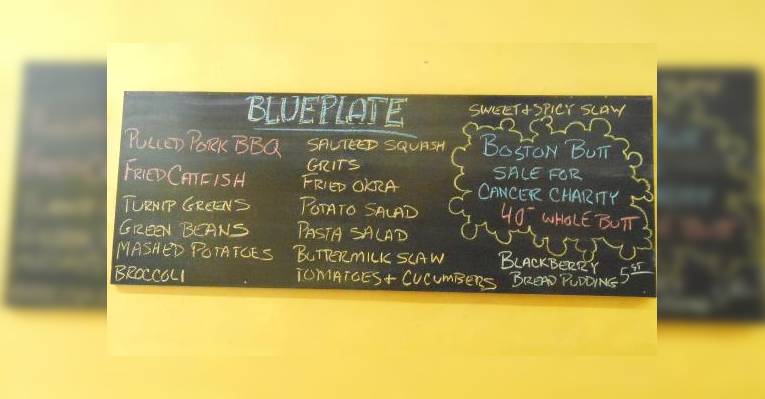 BLUEPLATE
PULLED PORK BBQ
FRIED CATFISH
TURNIP GREENS
GREEN BEANS
MASHED POTATOES
BROCCOLI
SAUTEED SQUASH
GRITS
FRIED OKRA
POTATO SALAD
PASTA SALAD
BUTTERMILK SLAW
TOMATOES + CUCUMBERS
SWEET & SPICY SLAW
BOSTON BUTT
SALE FOR
CANCER CHARITY
40- WHOLE BUTT
BLACKBERRY
BREAD PUDDING